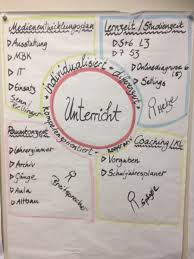 Medienentwicklungsplan
Ausstattung
MBK
IT
Einsatz
Lernzeit / Studienzeit
D 5+6 L3
D 7 S3
Onlinediagnose
Individualisiert - digital
kompetenzorientiert
Unterricht
Raumkonzept
Lehrerzimmer
Archiv
Gänge
Aula
Altbau
Coaching LKL
Vorgaben
Schuljahresplaner